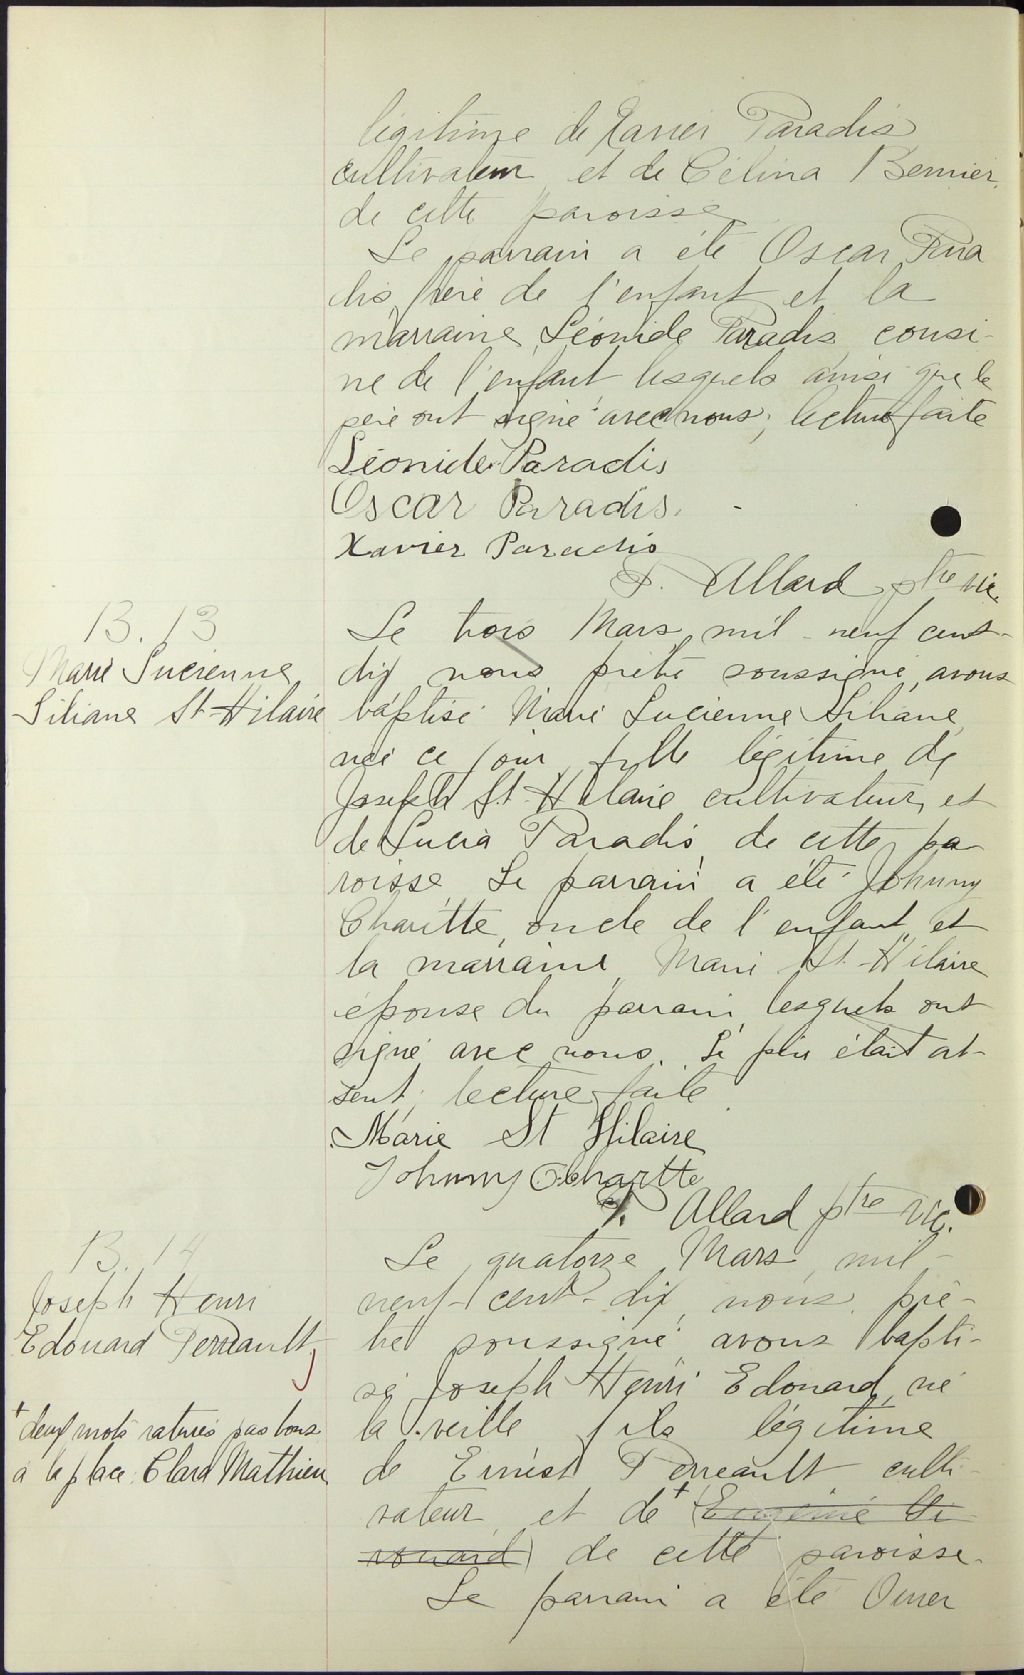 légitime de Xavier Paradis
cultivateur et de Célina Bernier
de cette paroisse
Le parrain a été Oscar Para
dis frère de l'enfant et la
marraine Léonide Paradis cousi-
ne de l'enfant lesquels ainsi que le
père ont signé avec nous, lecture faite
Léonide Paradis
Oscar Paradis.
Xavier Paradis
P. Allard ptre vic.
B. 13
Marie Lucienne
Liliane St-Hilaire
Le trois Mars mil neuf cent-
dix nous prêtre soussigné avons
baptisé Marie Lucienne Liliane
née ce jour fille légitime de
Joseph St-Hilaire cultivateur, et
de Lucia Paradis de cette pa-
roisse Le parrain a été Johnny
Charette oncle de l'enfant et
la marraine Marie St-Hilaire
épouse du parrain lesquels ont
signé avec nous. Le père était ab-
sent, lecture faite
Marie St Hilaire
Johnny Chartte
P. Allard ptre vic.
B. 14
Joseph Henri
Edouard Perreault
+ deux mots raturés pas bons
à la place: Clara Mathieu
Le quatorze Mars mil-
neuf-cent-dix, nous prê-
tre soussigné avons bapti-
sé Joseph Henri Edouard né
la veille fils légitime
de Ernest Perreault culti-
vateur et de + (Eugénie Si-
rouard) de cette paroisse.
Le parrain a été Omer